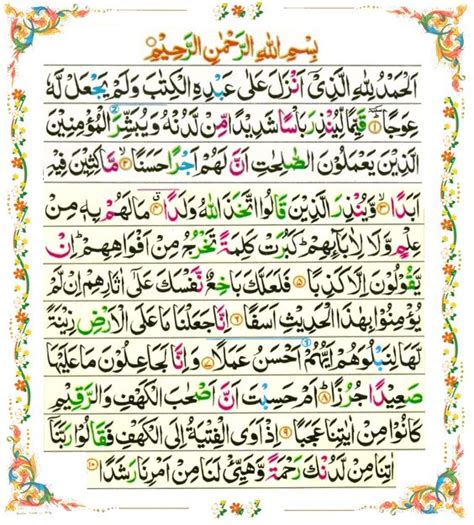 بِسْمِ اللهِ الرَّحْمٰنِ الرَّحِيْمِ
اَلْحَمْدُ لِلّٰهِ الَّذِىْٓ اَنْزَلَ عَلٰى عَبْدِهِ الْكِتٰبَ وَلَمْ يَجْعَلْ لَّهٗ
عِوَجًا ۜ ۱ قَيِّمًا لِّيُنْذِرَ بَاْسًا شَدِيْدًا مِّنْ لَّدُنْهُ وَيُبَشِّرَ الْمُؤْمِنِيْنَ
الَّذِيْنَ يَعْمَلُوْنَ الصّٰلِحٰتِ اَنَّ لَهُمْ اَجْرًا حَسَنًا ۲ مَّاكِثِيْنَ فِيْهِ
اَبَدًا ۳ وَّيُنْذِرَ الَّذِيْنَ قَالُوا اتَّخَذَ اللّٰهُ وَلَدًا ۴ مَا لَهُمْ بِهٖ مِنْ
عِلْمٍ وَّلَا لِاٰبَآئِهِمْ ؕ كَبُرَتْ كَلِمَةً تَخْرُجُ مِنْ اَفْوَاهِهِمْ ؕ اِنْ
يَّقُوْلُوْنَ اِلَّا كَذِبًا ۵ فَلَعَلَّكَ بَاخِعٌ نَّفْسَكَ عَلٰٓى اٰثَارِهِمْ اِنْ لَّمْ
يُؤْمِنُوْا بِهٰذَا الْحَدِيْثِ اَسَفًا ۶ اِنَّا جَعَلْنَا مَا عَلَى الْاَرْضِ زِيْنَةً
لَّهَا لِنَبْلُوَهُمْ اَيُّهُمْ اَحْسَنُ عَمَلًا ۷ وَاِنَّا لَجَاعِلُوْنَ مَا عَلَيْهَا
صَعِيْدًا جُرُزًا ۸ اَمْ حَسِبْتَ اَنَّ اَصْحٰبَ الْكَهْفِ وَالرَّقِيْمِ
كَانُوْا مِنْ اٰيٰتِنَا عَجَبًا ۹ اِذْ اَوَى الْفِتْيَةُ اِلَى الْكَهْفِ فَقَالُوْا رَبَّنَآ
اٰتِنَا مِنْ لَّدُنْكَ رَحْمَةً وَّهَيِّئْ لَنَا مِنْ اَمْرِنَا رَشَدًا ۱۰